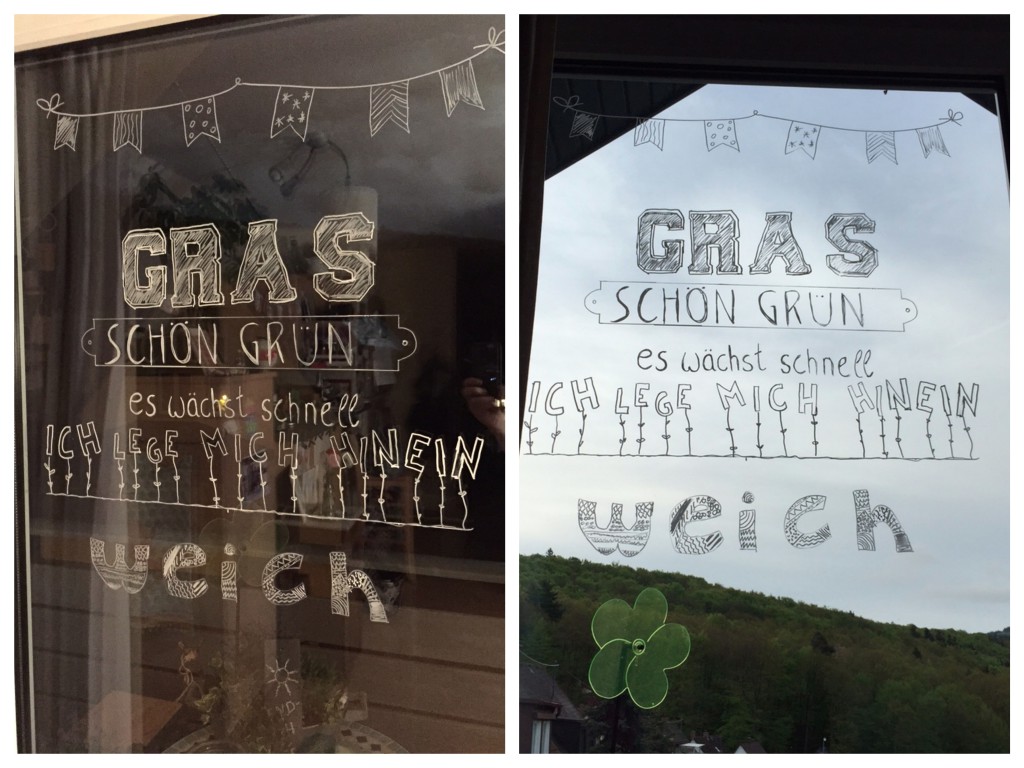 GRAS
SCHÖN GRÜN
es wächst schnell
ICH LEGE MICH HINEIN
weich
GRAS
SCHÖN GRÜN
es wächst schnell
ICH LEGE MICH HINEIN
weich